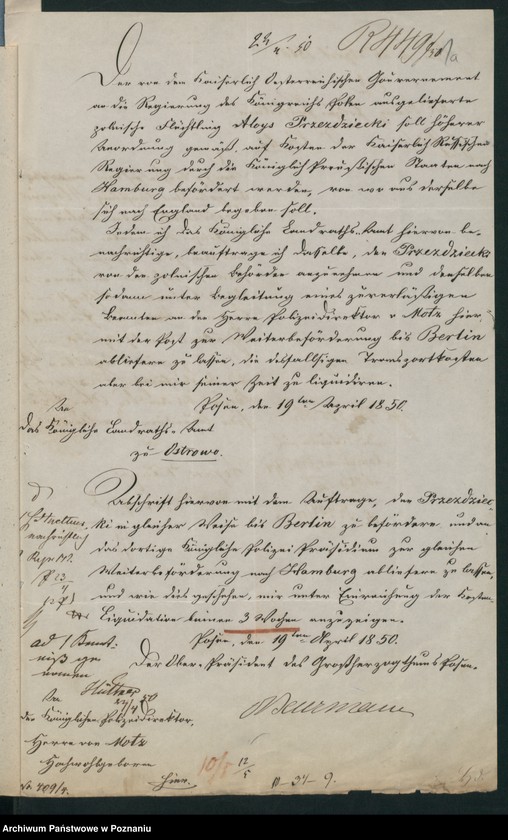 23/4 50
R 449/50
Der von dem Kaiserlich Oesterreichischen Gouvernement
an die Regierung des Königreichs Polen ausgelieferte
polnische Flüchtling Aloys Przezdziecki soll höherer
Anordnung gemäß, auf Kosten der Kaiserlich Russischen
Regierung durch die Königlich Preußischen Staaten nach
Hamburg befördert werden, von wo aus derselbe
sich nach England begeben soll.
Indem ich das Königliche Landraths-Amt hiervon be-
nachrichtige, beauftrage ich dasselbe, den Przezdziecki
von den polnischen Behörden anzunehmen und denselben
sodann unter Begleitung eines zuverläßigen
Beamten an den Herrn Polizeidirektor v Motz hier
mit der Post zur Weiterbeförderung bis Berlin
abliefern zu lassen, die desfallsigen Transportkosten
aber bei mir seiner Zeit zu liquidiren.
Posen, den 19ten April 1850.
An
das Königliche Landraths-Amt
zu Ostrowo.
Abschrift hiervon mit dem Auftrage, den Przezdziec-
ki in gleicher Weise bis Berlin zu befördern und an
das dortige Königliche Polizei Präsidium zur gleichen
Weiterbeförderung nach Hamburg abliefern zu lassen,
und wie dies geschehen, mir unter Einreichung der Kosten-
Liquidation binnen 3 Wochen anzuzeigen.
Posen, den 19ten April 1850.
Der Ober-Präsident des Großherzogthums Posen.
Beurmann
ad 1 Kennt-
niß ge
nommen
An
den Königlichen Polizeidirektor,
Herrn von Motz
Hochwohlgeboren
Hier.
No 409/4.
10/5
12/5
III-34-9.
Archiwum Państwowe w Poznaniu